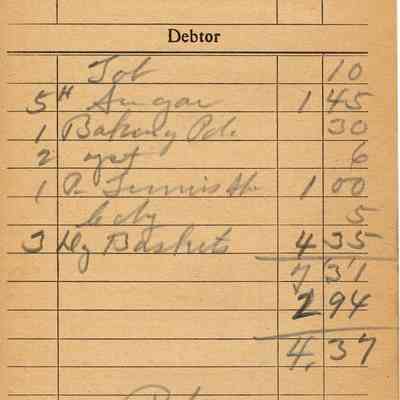 Debtor
Tob 10
5 # Sugar 1 45
1 Baking Pd. 30
2 yst 6
1 Pr Tennis Sh 1 00
5
3 Dz Baskets 4 35
7 31
2 94
4,37